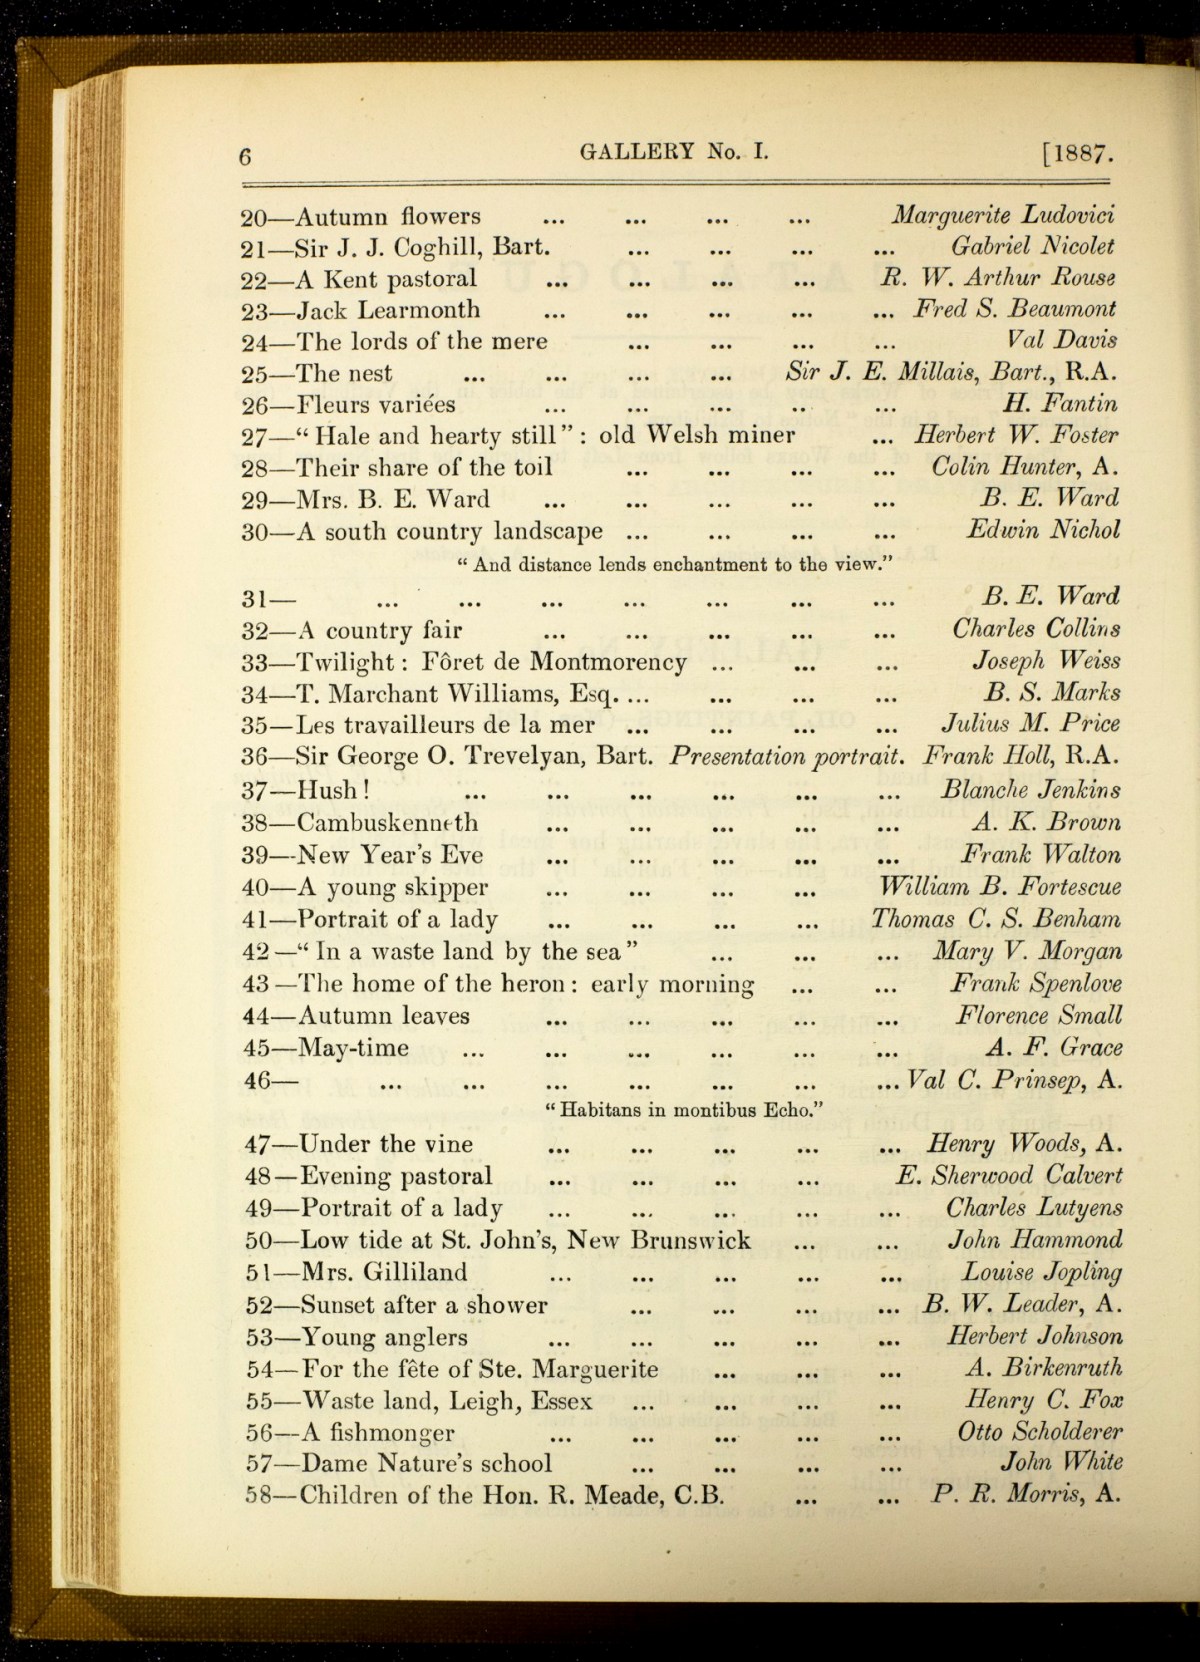 6 GALLERY No. I. [1887.
20—Autumn flowers ... ... ... ... Marguerite Ludovici
21—Sir J. J. Coghill, Bart. ... ... ... ... Gabriel Nicolet
22—A Kent pastoral ... ... ... ... R. W. Arthur Rouse
23—Jack Learmonth ... ... ... ... ... Fred S. Beaumont
24—The lords of the mere ... ... ... ... Val Davis
25—The nest ... ... ... ... Sir J. E. Millais, Bart., R.A.
26—Fleurs variées ... ... ... .. ... H. Fantin
27—“Hale and hearty still”: old Welsh miner ... Herbert W. Foster
28—Their share of the toil ... ... ... ... Colin Hunter, A.
29—Mrs. B. E. Ward ... ... ... ... ... B. E. Ward
30—A south country landscape ... ... ... ... Edwin Nichol
“And distance lends enchantment to the view.”
31— ... ... ... ... ... ... ... B. E. Ward
32—A country fair ... ... ... ... ... Charles Collins
33—Twilight: Fôret de Montmorency ... ... ... Joseph Weiss
34—T. Marchant Williams, Esq. ... ... ... ... B. S. Marks
35—Les travailleurs de la mer ... ... ... ... Julius M. Price
36—Sir George O. Trevelyan, Bart. Presentation portrait. Frank Holl, R.A.
37—Hush! ... ... ... ... ... ... Blanche Jenkins
38—Cambuskenneth ... ... ... ... ... A. K. Brown
39—New Year's Eve ... ... ... ... ... Frank Walton
40—A young skipper ... ... ... ... William B. Fortescue
41—Portrait of a lady ... ... ... ... Thomas C. S. Benham
42—“In a waste land by the sea” ... ... ... Mary V. Morgan
43—The home of the heron: early morning ... ... Frank Spenlove
44—Autumn leaves ... ... ... ... ... Florence Small
45—May-time ... ... ... ... ... ... A. F. Grace
46— ... ... ... ... ... ... ... Val C. Prinsep, A.
“Habitans in montibus Echo.”
47—Under the vine ... ... ... ... ... Henry Woods, A.
48—Evening pastoral ... ... ... ... E. Sherwood Calvert
49—Portrait of a lady ... ... ... ... ... Charles Lutyens
50—Low tide at St. John's, New Brunswick ... ... John Hammond
51—Mrs. Gilliland ... ... ... ... ... Louise Jopling
52—Sunset after a shower ... ... ... ... B. W. Leader, A.
53—Young anglers ... ... ... ... ... Herbert Johnson
54—For the fête of Ste. Marguerite ... ... ... A. Birkenruth
55—Waste land, Leigh, Essex ... ... ... ... Henry C. Fox
56—A fishmonger ... ... ... ... ... Otto Scholderer
57—Dame Nature's school ... ... ... ... John White
58—Children of the Hon. R. Meade, C.B. ... ... P. R. Morris, A.